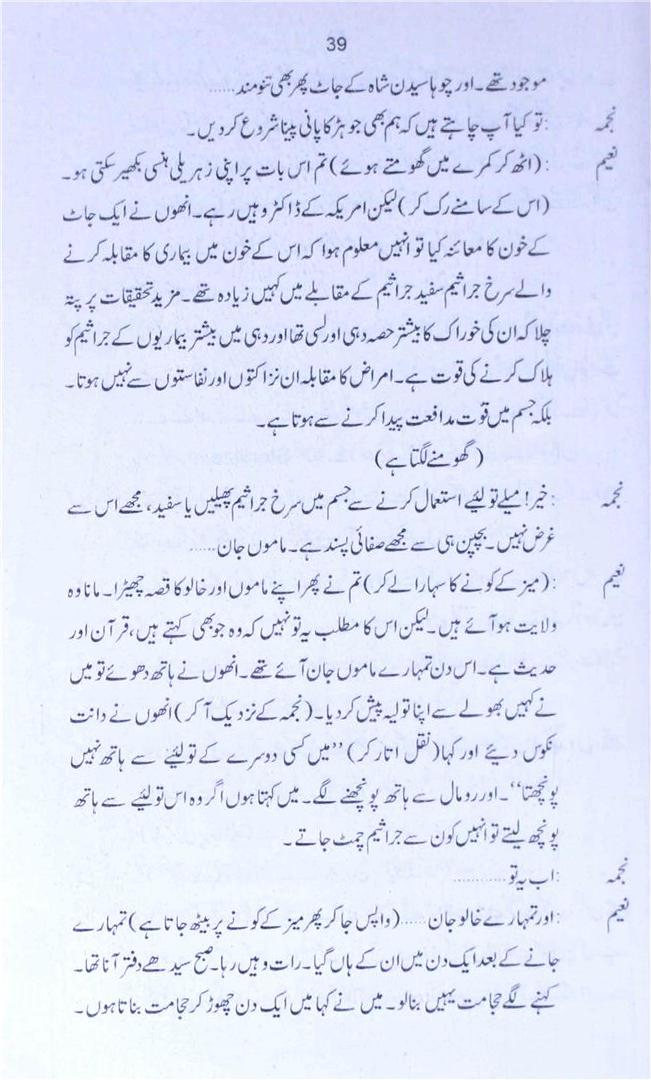 39
موجود تھے۔ اور چوہا سیدن شاہ کے جاٹ پھر بھی تنومند......
نجمہ :تو کیا آپ چاہتے ہیں کہ ہم بھی جوہڑ کا پانی پینا شروع کر دیں۔
نعیم :(اٹھ کر کمرے میں گھومتے ہوئے) تم اس بات پر اپنی زہریلی ہنسی بکھیر سکتی ہو۔
(اس کے سامنے رک کر) لیکن امریکہ کے ڈاکٹر وہیں رہے۔ انھوں نے ایک جاٹ
کے خون کا معائنہ کیا تو انہیں معلوم ہوا کہ اس کے خون میں بیماری کا مقابلہ کرنے
والے سرخ جراثیم سفید جراثیم کے مقابلے میں کہیں زیادہ تھے۔ مزید تحقیقات پر پتہ
چلا کہ ان کی خوراک کا بیشتر حصہ دہی اور لسی تھا اور دہی میں بیشتر بیماریوں کے جراثیم کو
ہلاک کرنے کی قوت ہے۔ امراض کا مقابلہ ان نزاکتوں اور نفاستوں سے نہیں ہوتا۔
بلکہ جسم میں قوت مدافعت پیدا کرنے سے ہوتا ہے۔
(گھومنے لگتا ہے)
نجمہ :خیر! میلے تولیئے استعمال کرنے سے جسم میں سرخ جراثیم پھیلیں یا سفید، مجھے اس سے
غرض نہیں۔ بچپن ہی سے مجھے صفائی پسند ہے۔ ماموں جان......
نعیم :(میز کے کونے کا سہارا لے کر) تم نے پھر اپنے ماموں اور خالو کا قصہ چھیڑا۔ مانا وہ
ولایت ہو آئے ہیں۔ لیکن اس کا مطلب یہ تو نہیں کہ وہ جو بھی کہتے ہیں، قرآن اور
حدیث ہے۔ اس دن تمہارے ماموں جان آئے تھے۔ انھوں نے ہاتھ دھوئے تو میں
نے کہیں بھولے سے اپنا تولیہ پیش کر دیا۔ (نجمہ کے نزدیک آ کر) انھوں نے دانت
نکوس دیئے اور کہا (نقل اتار کر) ’’میں کسی دوسرے کے تولیئے سے ہاتھ نہیں
پونچھتا‘‘۔ اور رومال سے ہاتھ پونچھنے لگے۔ میں کہتا ہوں اگر وہ اس تولیئے سے ہاتھ
پونچھ لیتے تو انہیں کون سے جراثیم چمٹ جاتے۔
نجمہ :اب یہ تو............
نعیم :اور تمہارے خالو جان......(واپس جا کر پھر میز کے کونے پر بیٹھ جاتا ہے) تمہارے
جانے کے بعد ایک دن میں ان کے ہاں گیا۔ رات وہیں رہا۔ صبح سیدھے دفتر آنا تھا۔
کہنے لگے حجامت یہیں بنا لو۔ میں نے کہا میں ایک دن چھوڑ کر حجامت بناتا ہوں۔